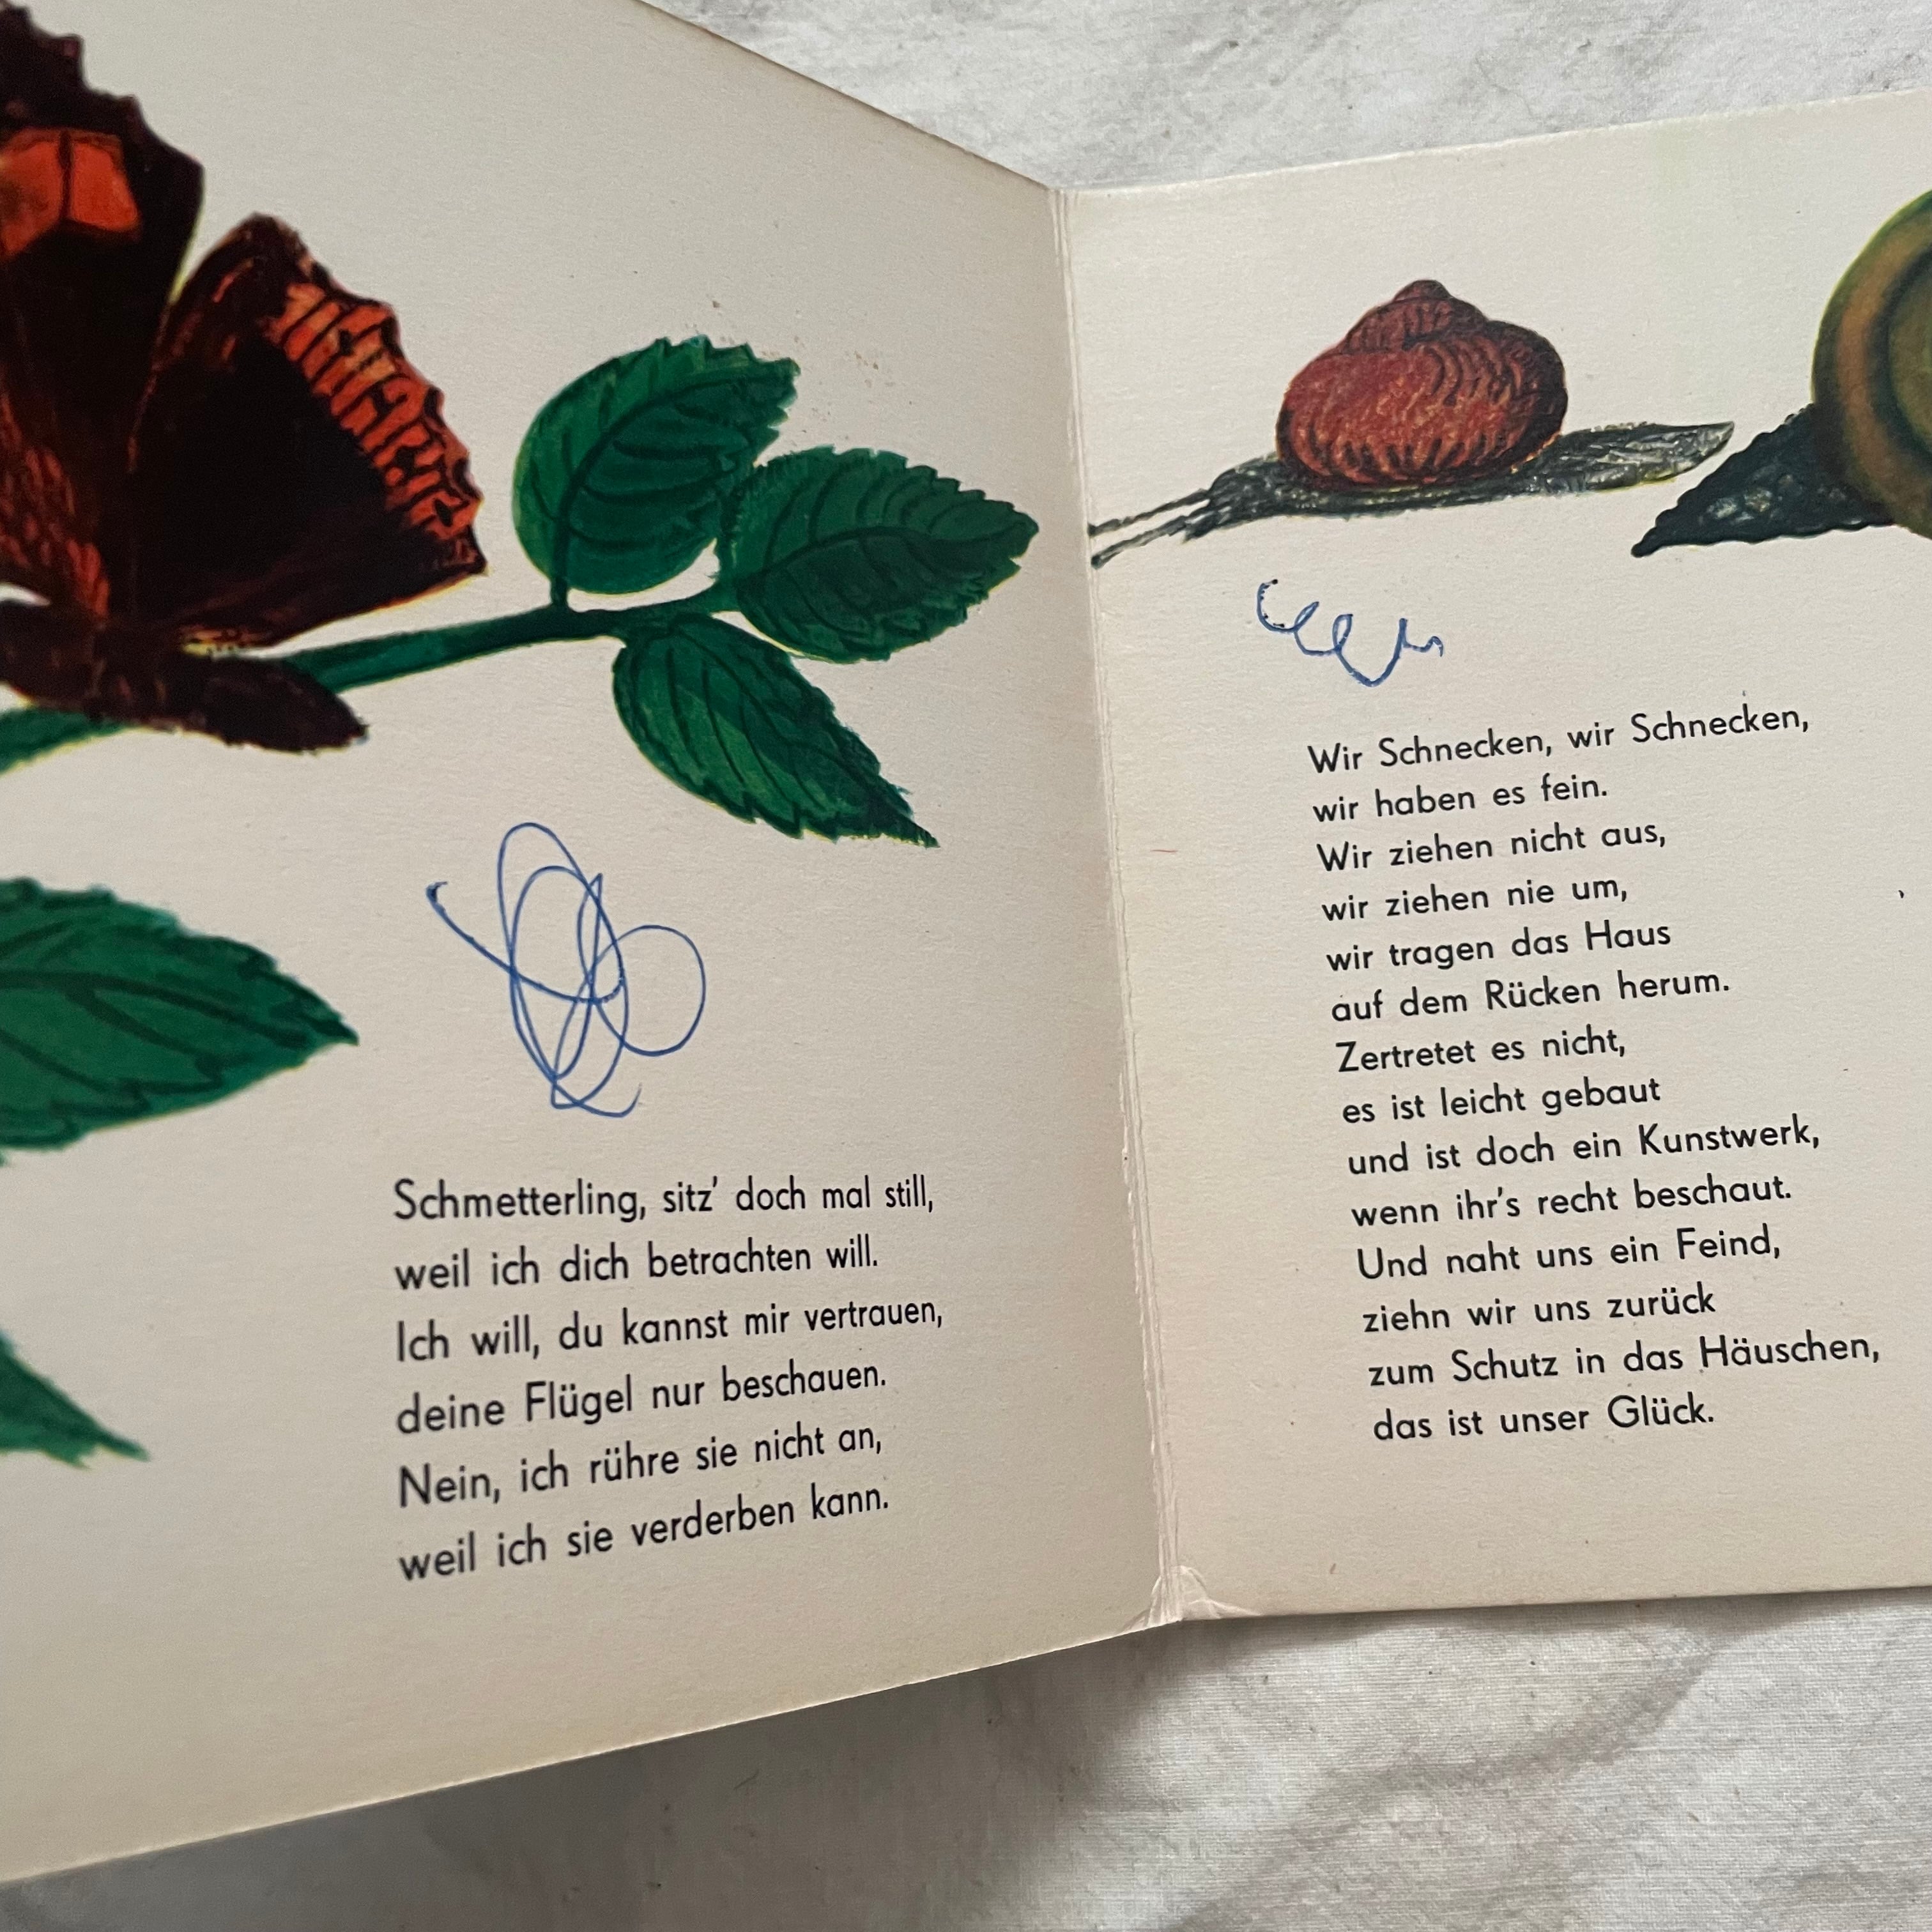 Schmetterling, sitz' doch mal still,
weil ich dich betrachten will.
Ich will, du kannst mir vertrauen,
deine Flügel nur beschauen.
Nein, ich rühre sie nicht an,
weil ich sie verderben kann.
Wir Schnecken, wir Schnecken,
wir haben es fein.
Wir ziehen nicht aus,
wir ziehen nie um,
wir tragen das Haus
auf dem Rücken herum.
Zertretet es nicht,
es ist leicht gebaut
und ist doch ein Kunstwerk,
wenn ihr's recht beschaut.
Und naht uns ein Feind,
ziehn wir uns zurück
zum Schutz in das Häuschen,
das ist unser Glück.